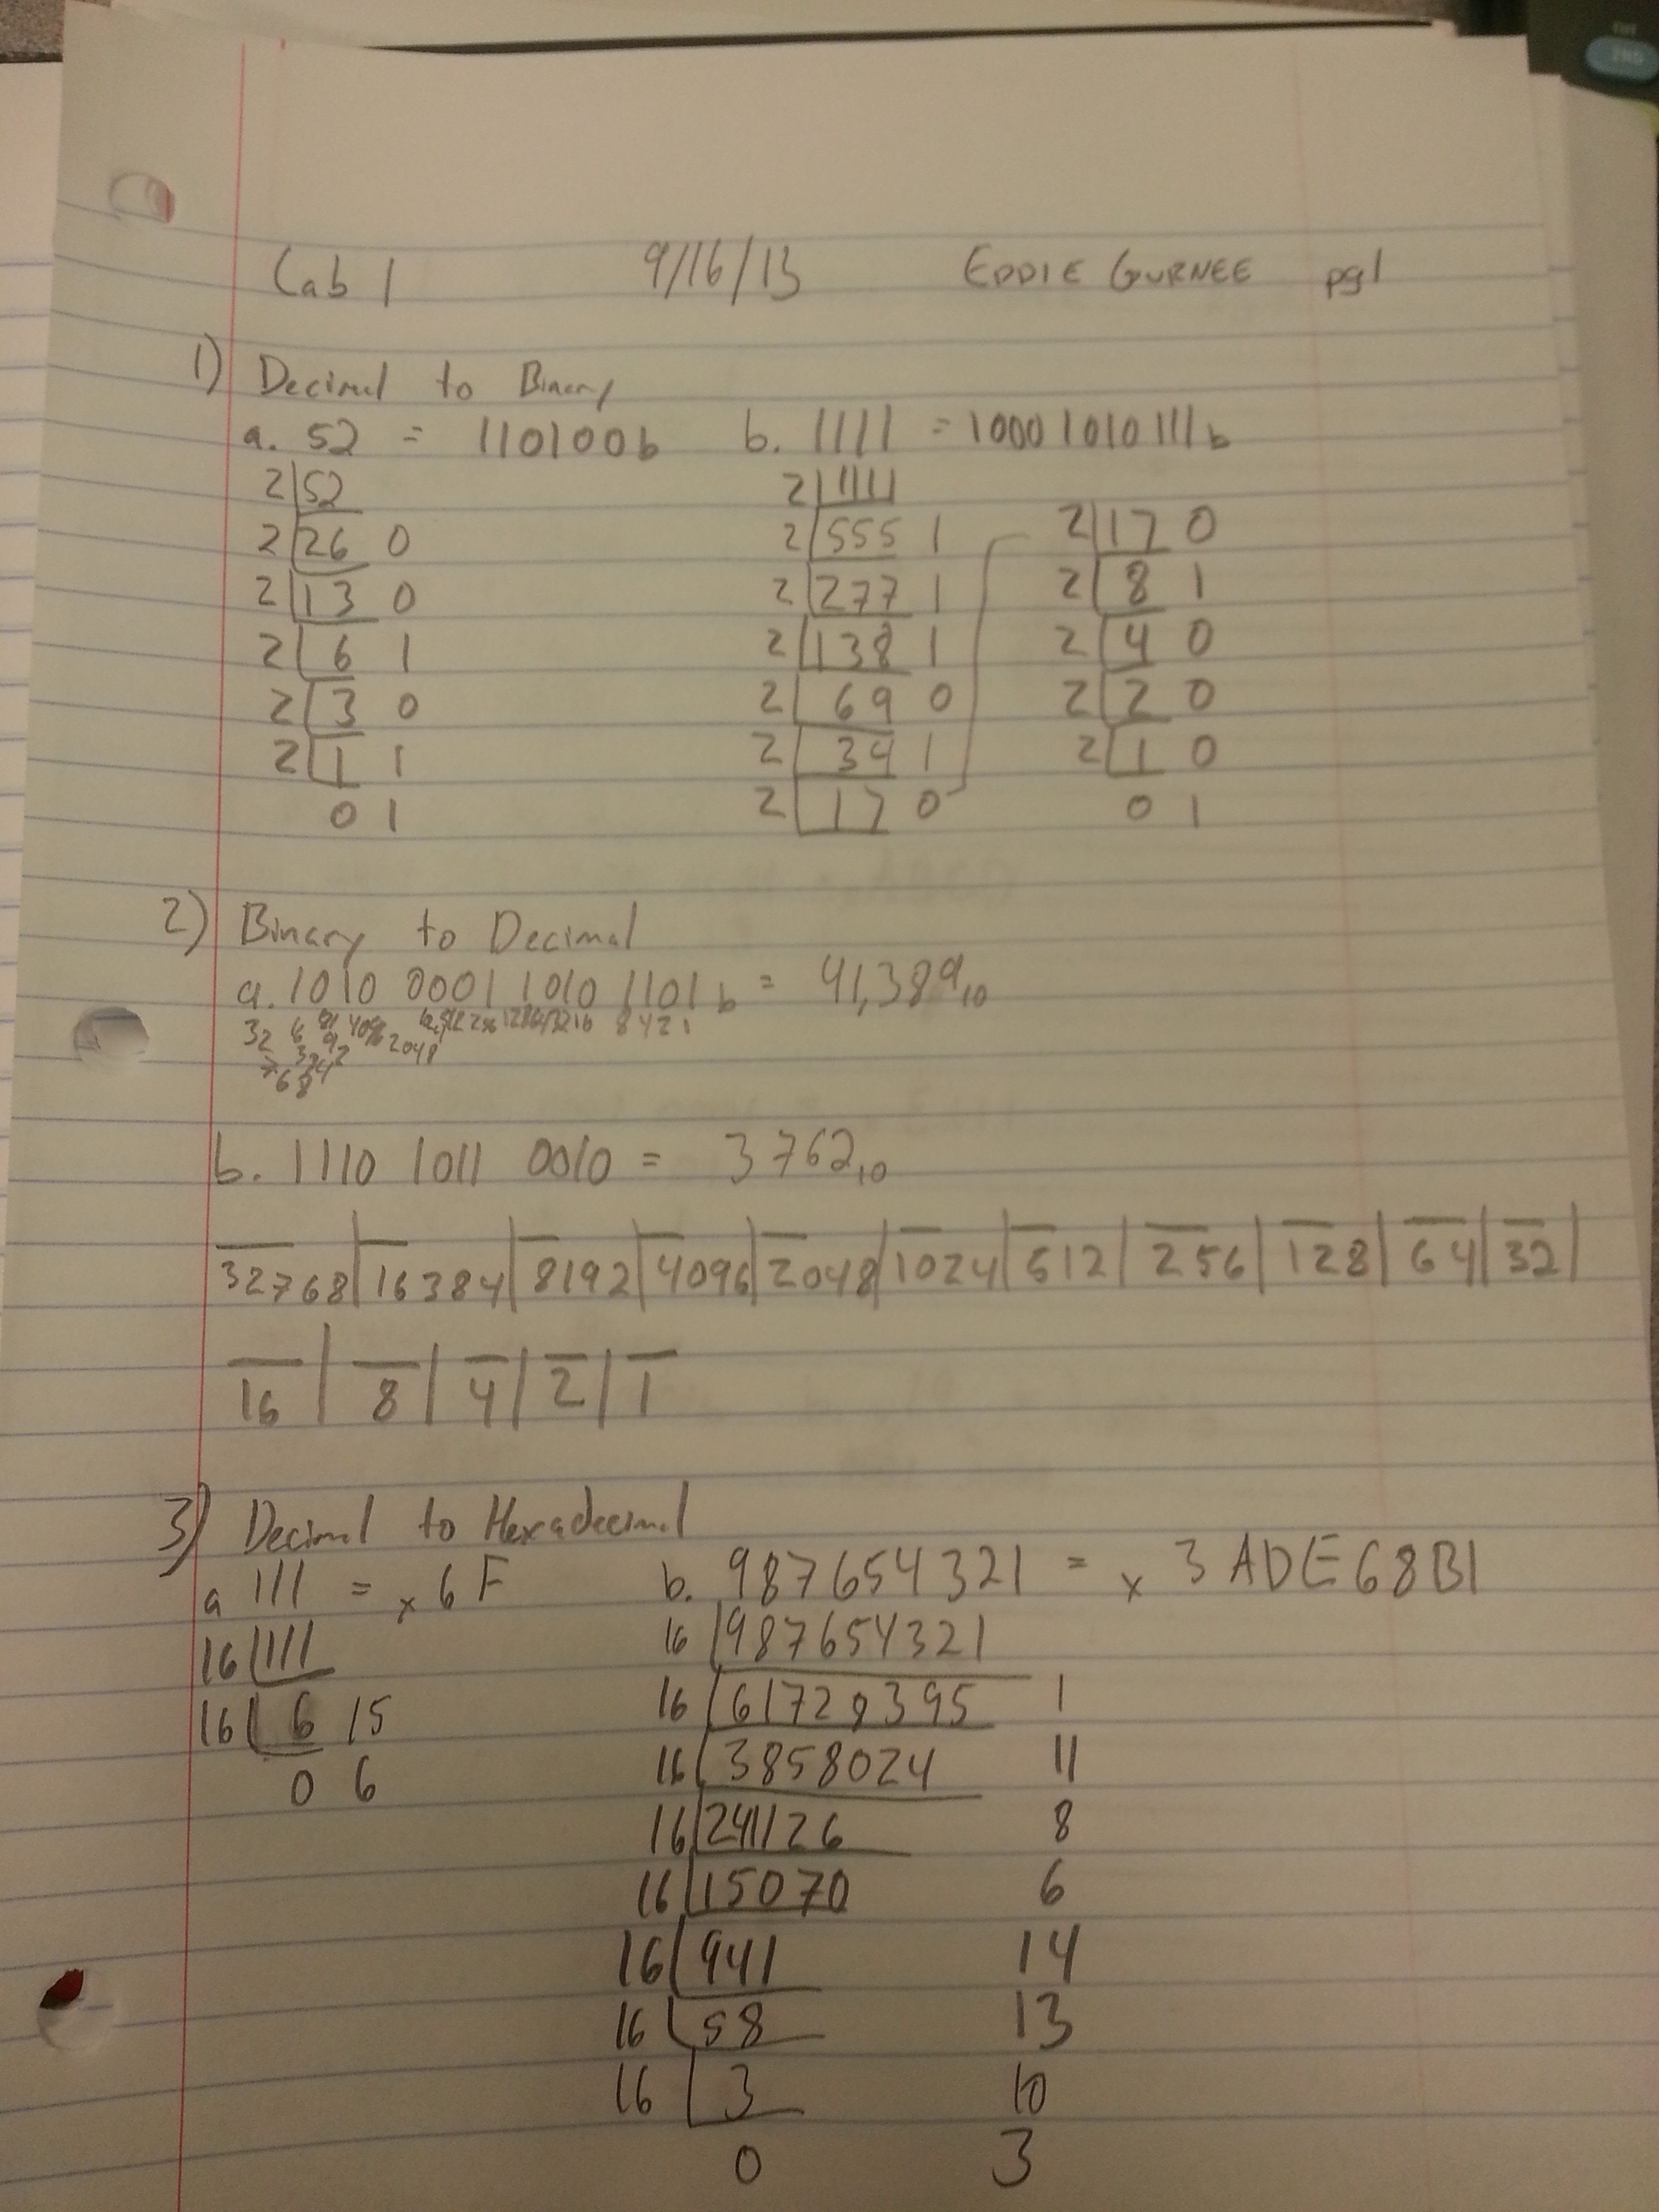 Lab 1 9/16/13 EDDIE GURNEE pg1
1) Decimal to Binary
a. 52 = 110100b b. 1111 = 10001010111b
2|52 2|1111
2|26 0 2|555 1 2|17 0
2|13 0 2|277 1 2|8 1
2|6 1 2|138 1 2|4 0
2|3 0 2|69 0 2|2 0
2|1 1 2|34 1 2|1 0
0 1 2|17 0 0 1
2) Binary to Decimal
a. 1010 0001 1010 1101b = 41,389₁₀
4096 2048 512 256 128 64 32 16 8 4 2 1
b. 1110 1011 0010 = 3762₁₀
32768| 16384| 8192| 4096| 2048| 1024| 512| 256| 128| 64| 32|
16| 8| 4| 2| 1
3) Decimal to Hexadecimal
a 111 = x6F b. 987654321 = x3ADE68B1
16|111 16|987654321
16|6 15 16|61728395 1
0 6 16|3858024 11
16|241126 8
16|15070 6
16|941 14
16|58 13
16|3 10
0 3
2ND